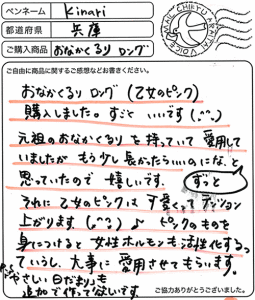 ペンネーム Kinari
都道府県 兵庫
ご購入商品 おなかくるり ロング
MAIL CHIKYU ARAITAI VOICE
ご自由に商品に関するご感想などお書きください。
おなかくるり ロング (乙女のピンク)
購入しました。すごく いいです (.^^.)
元祖のおなかくるりを持っていて 愛用して
いましたが もう少し長かったらいいのになぁと
思っていたので 嬉しいです。
ずっと
それに乙女のピンクは 可愛くってテンション
上がります。(.^^.)♪ ピンクのものを
身につけると 女性ホルモンも活性化する
っていうし、大事に 愛用させてもらいます。
やさしい日だまりも
追加で作って欲しいです。
ご協力ありがとうございました。